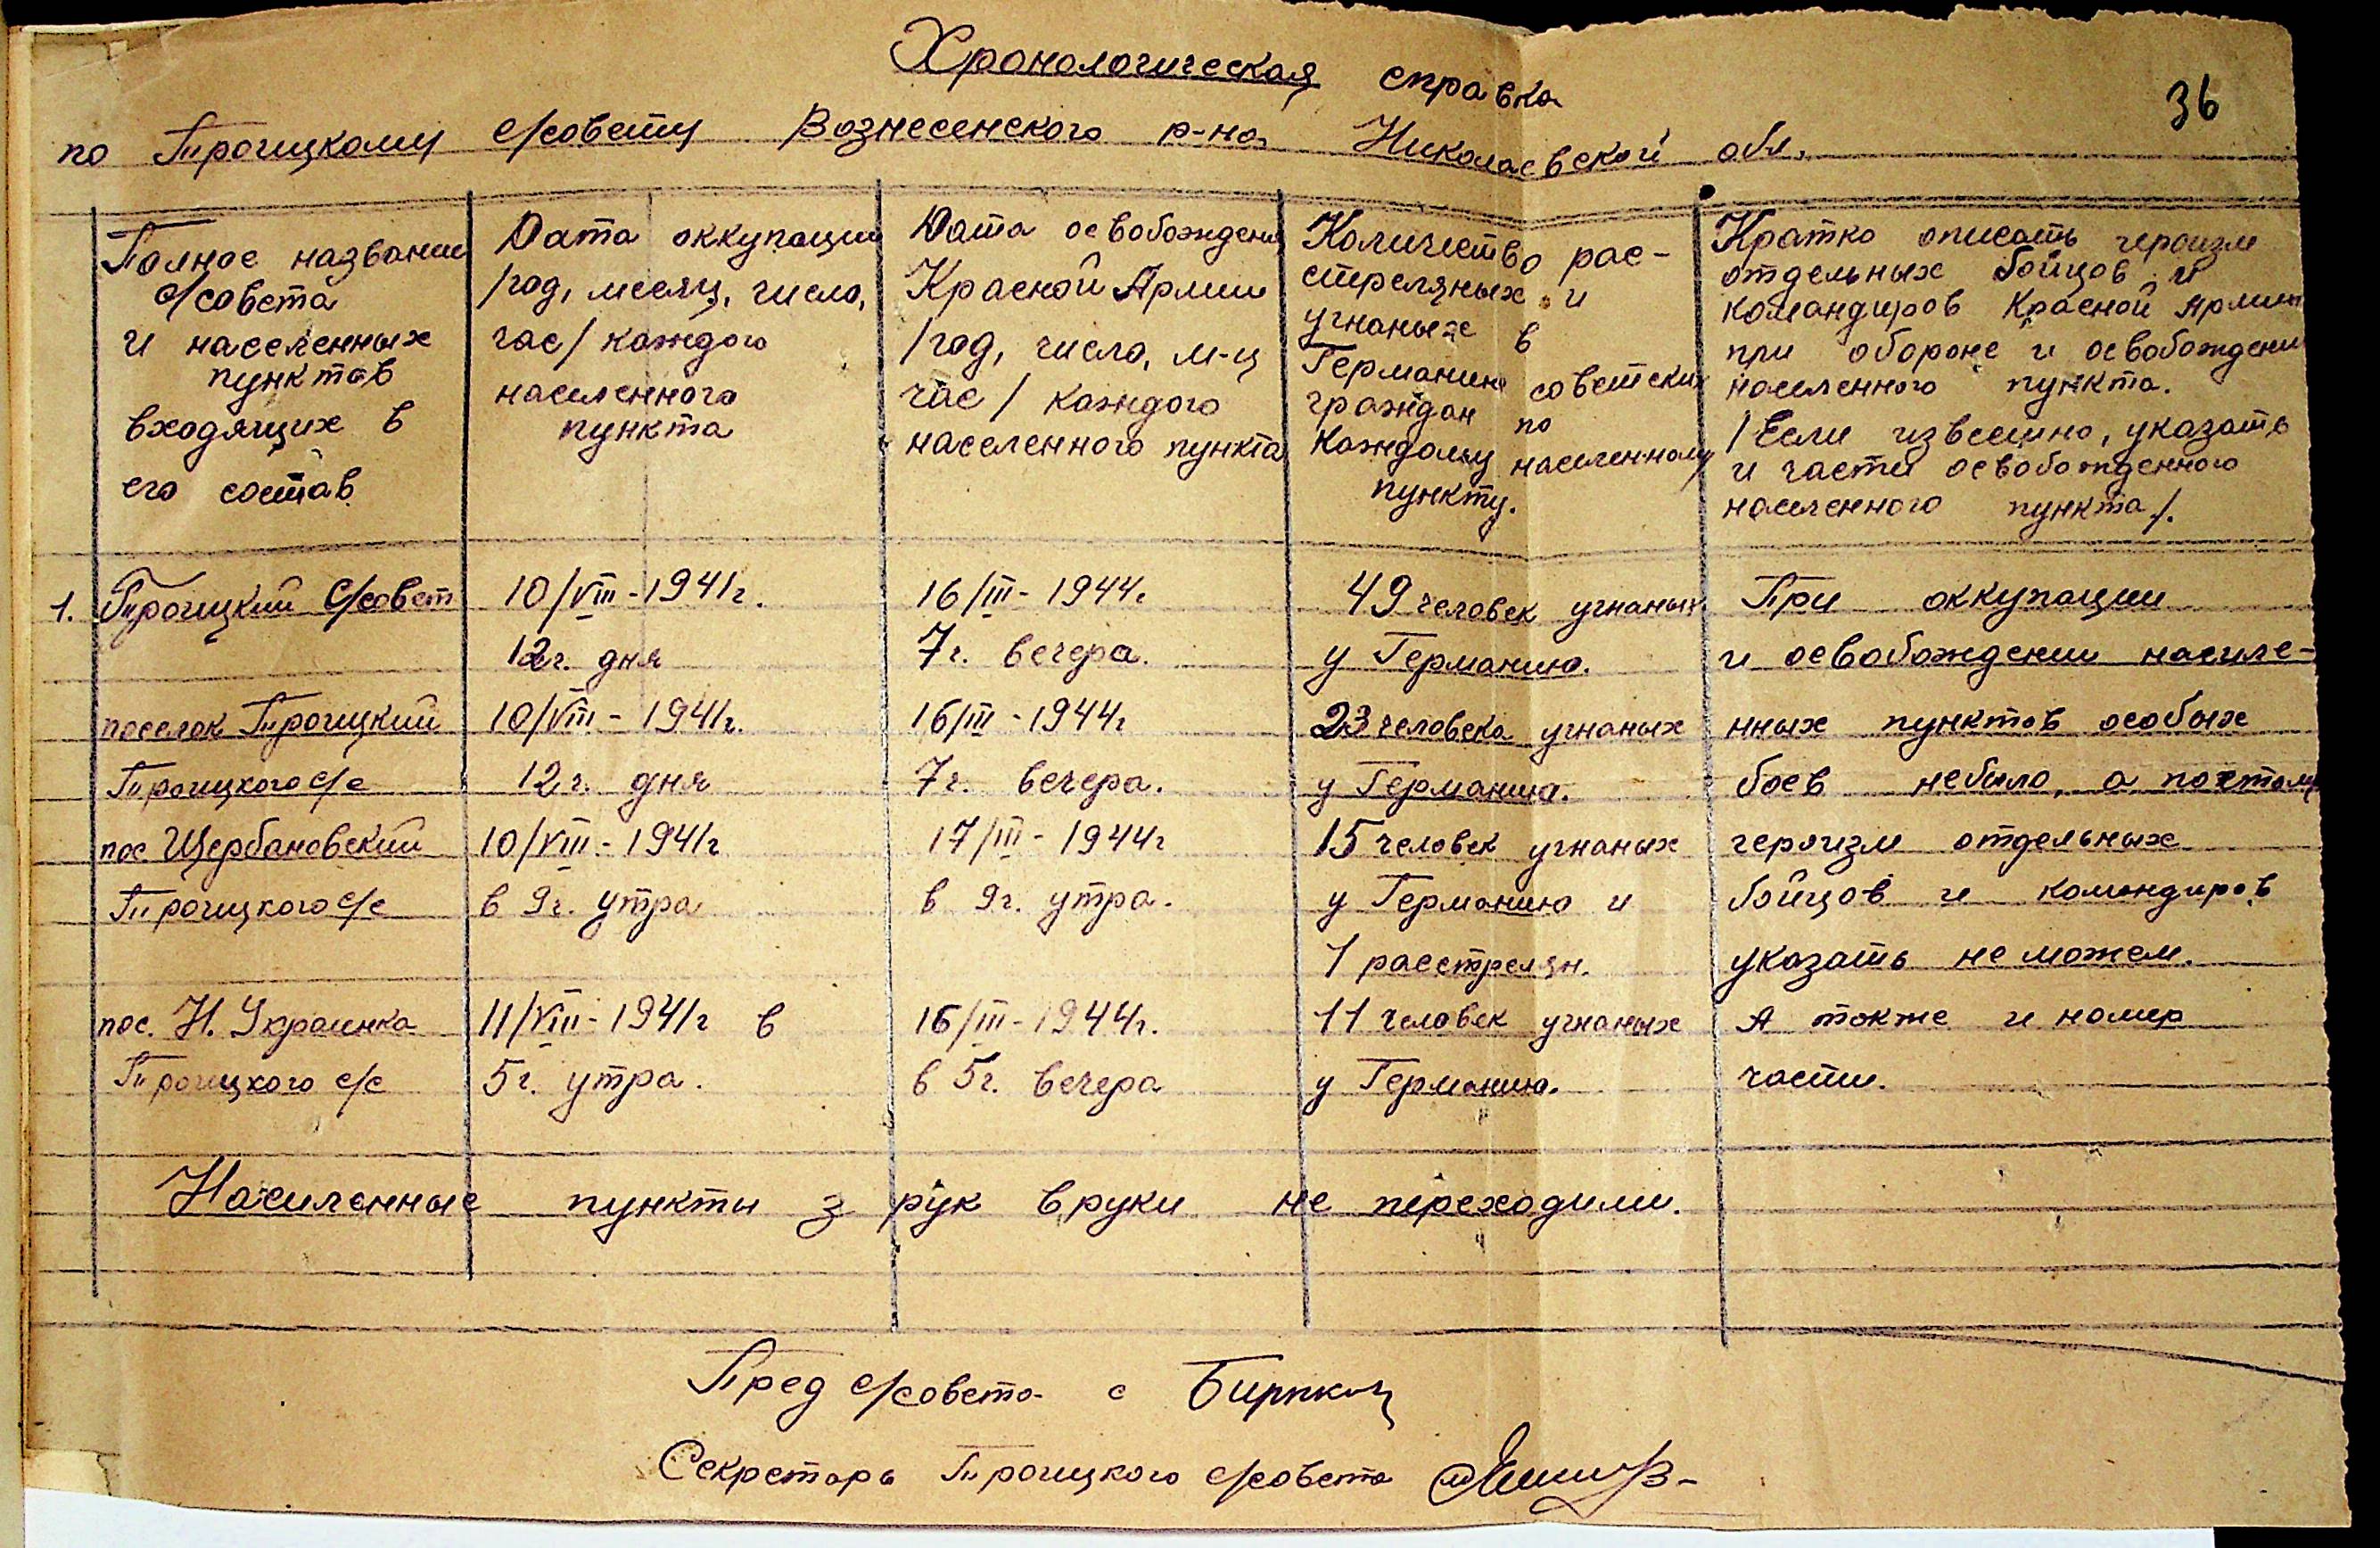 Хронологическая справка
36
по Троицкому с/совету Вознесенского р-на Николаевской обл.
Полное название
с/совета
и населенных
пунктов
входящих в
его состав
Дата оккупации
/год, месяц, число,
час/ каждого
населенного
пункта
Дата освобождения
Красной Армии
/год, число, м-ц
час/ каждого
населенного пункта
Количество рас-
стреляных и
угнаных в
Германию советских
граждан по
каждому населенному
пункту.
Кратко описать героизм
отдельных бойцов и
командиров Красной Армии
при обороне и освобождении
населенного пункта.
/Если известно, указать
и части освобожденного
населенного пункта/.
1. Троицкий С/совет 10/VIII-1941г. 16/III-1944г 49 человек угнаных При оккупации
12г. дня 7г. вечера. у Германию. и освобождении населе-
поселок Троицкий 10/VIII-1941г. 16/III-1944г 23 человека угнаных нных пунктов особых
Троицкого с/с 12г. дня 7г. вечера. у Германию. боев небыло, а поэтому
пос Щербановский 10/VIII-1941г 17/III-1944г 15 человек угнаных героизм отдельных
Троицкого с/с в 9г. утра в 9г. утра. у Германию и бойцов и командиров
1 расстрелян. указать не можем.
пос. Н. Украинка 11/VIII-1941г в 16/III-1944г. 11 человек угнаных А также и номер
Троицкого с/с 5г. утра. в 5г. вечера у Германию. части.
Населенные пункты з рук вруки не переходили.
Пред с/совета
Секретарь Троицкого с/совета